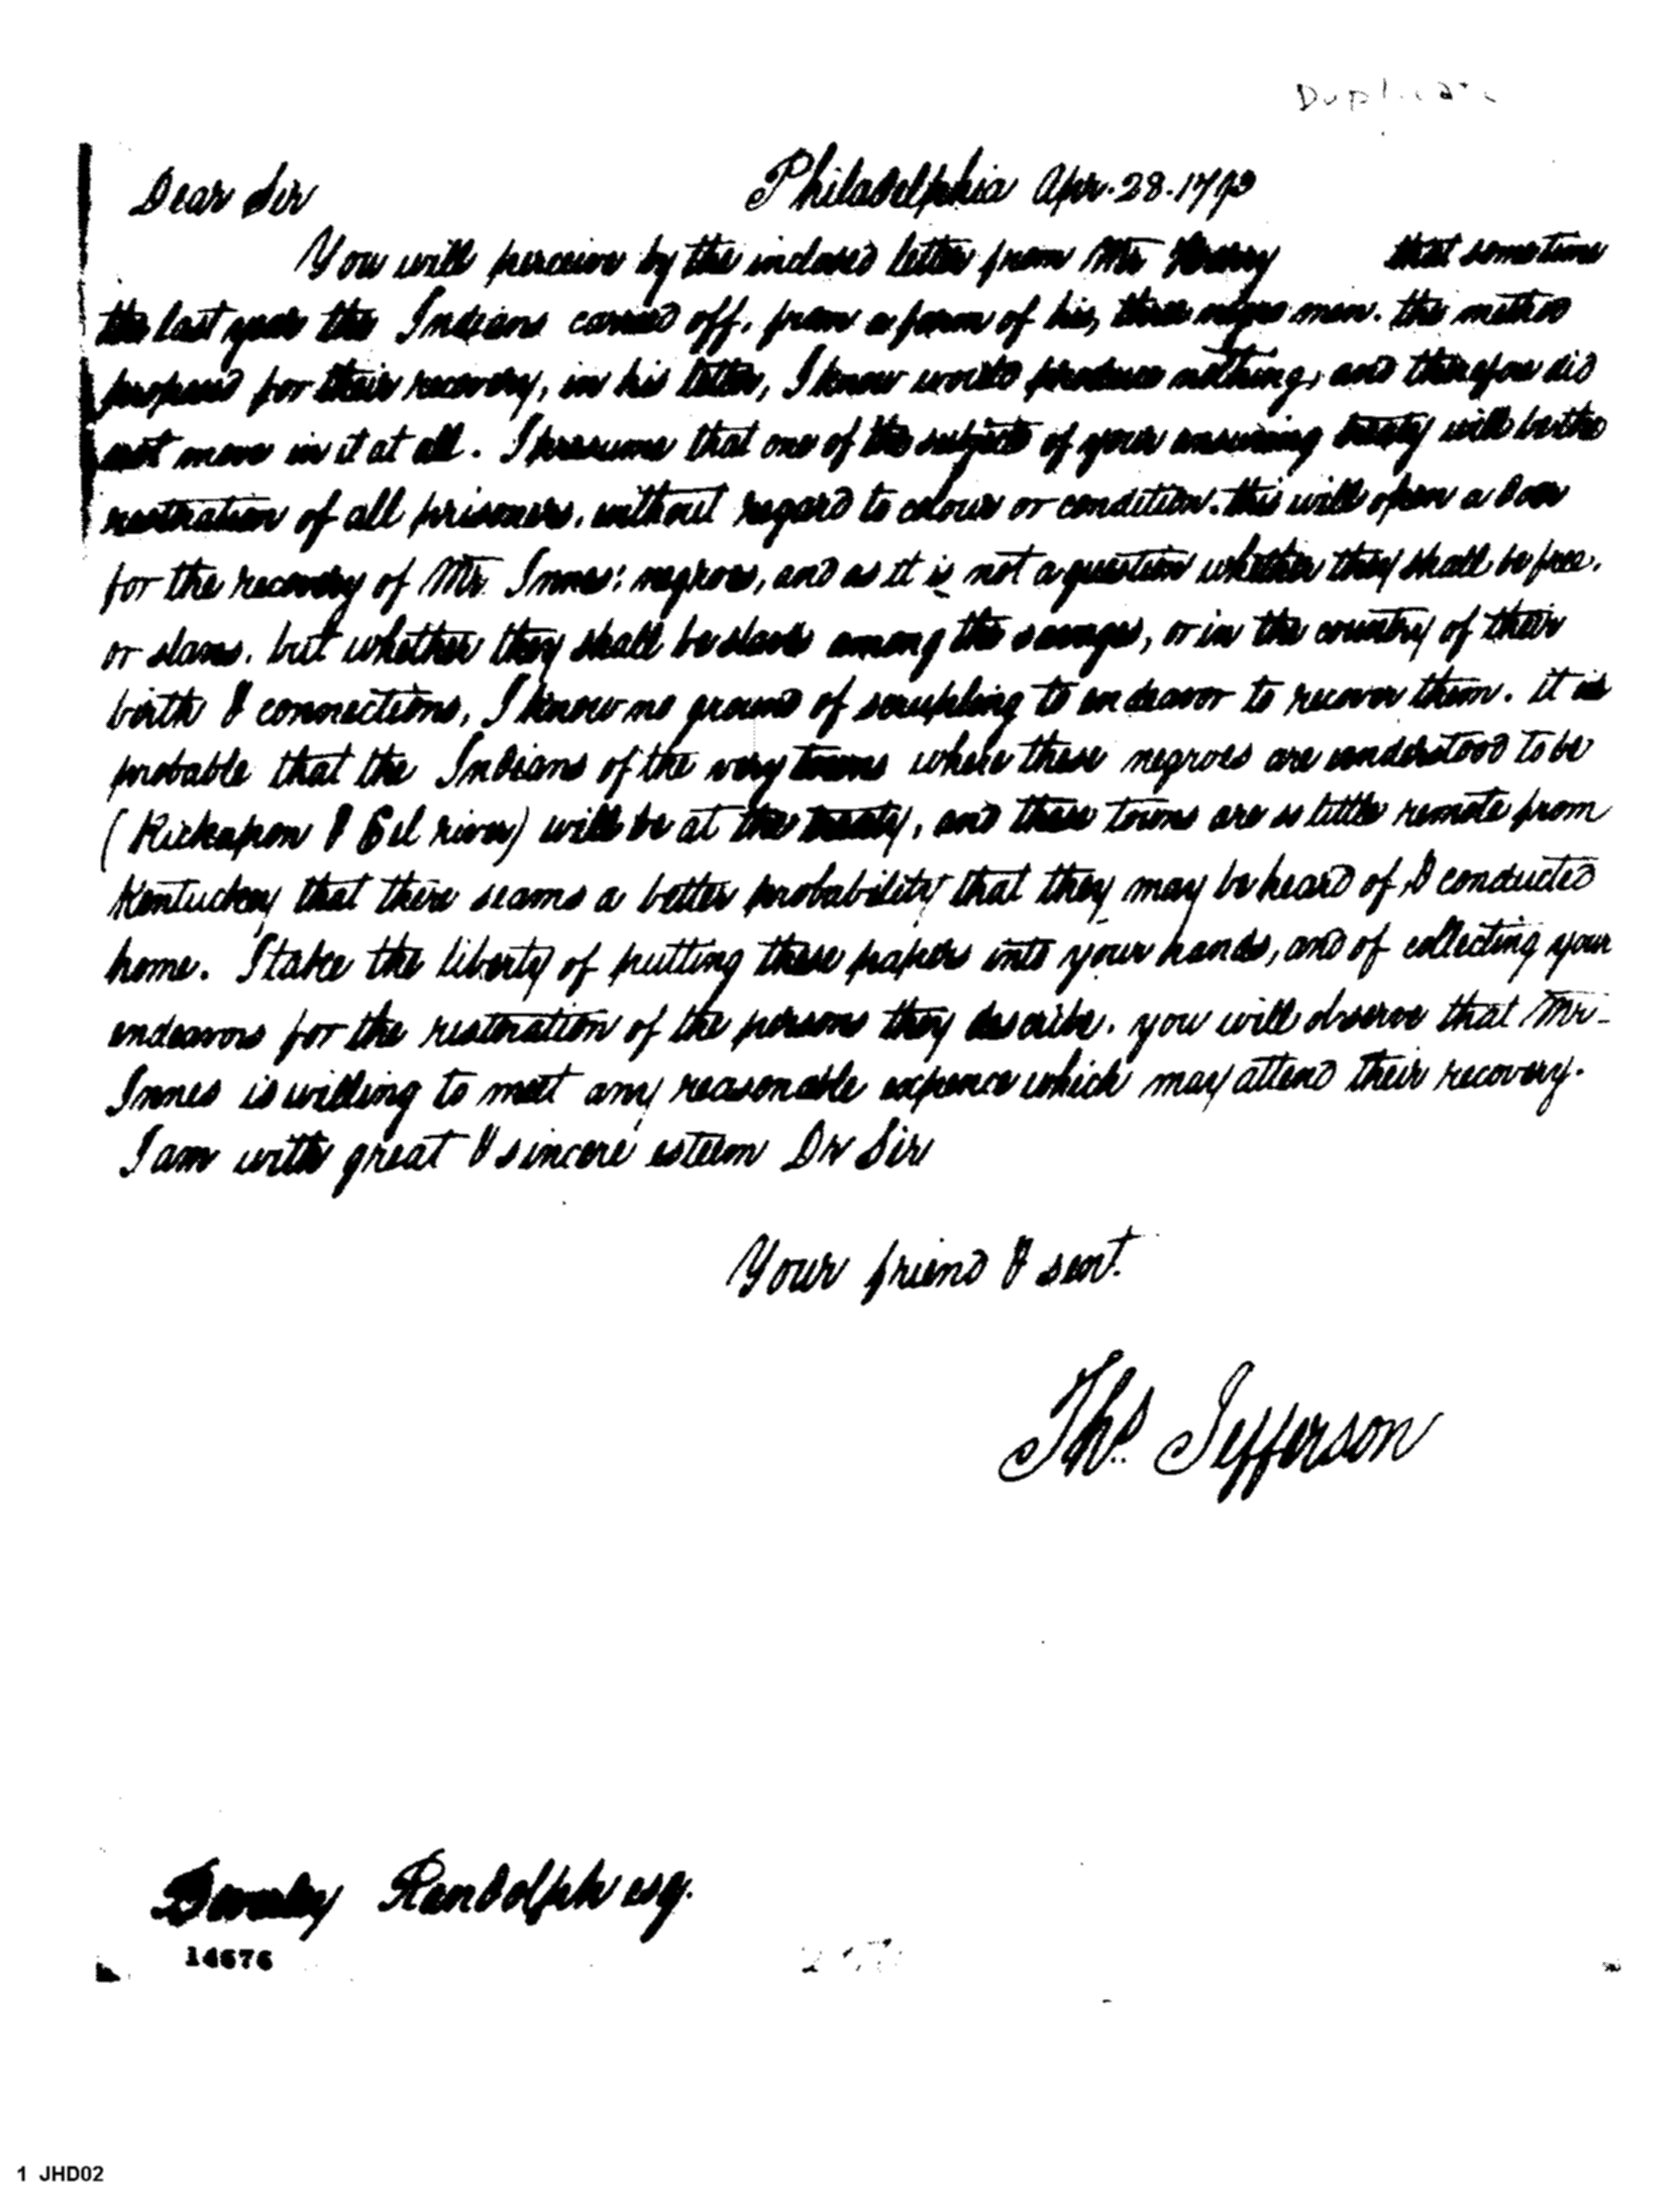 Duplicate
Dear Sir Philadelphia Apr. 28. 1793
You will perceive by the inclosed letter from Mr that sometime
the last year the Indians carried off, from a farm of his, three negro men. the method
proposed for their recovery, in his letter, I know would produce nothing, and therefore did
not move in it at all. I presume that one of the subjects of your ensuing treaty will be the
restoration of all prisoners, without regard to colour or condition. this will open a door
for the recovery of Mr. Innes's negroes, and as it is not a question whether they shall be free,
or slaves, but whether they shall be slaves among the savages, or in the country of their
birth & connections, I know no ground of scrupling to endeavor to recover them. it is
probable that the Indians of the very towns where these negroes are understood to be
(Kickapou & Eel river) will be at the treaty, and these towns are so little remote from
Kentuckey that there seams a better probability that they may be heard of & conducted
home. I take the liberty of putting these papers into your hands, and of collecting your
endeavors for the restoration of the persons they describe. you will observe that Mr.
Innes is willing to meet any reasonable expence which may attend their recovery.
I am with great & sincere esteem Dr Sir
Your friend & servt.
Ths. Jefferson
Randolph esq.
14676
1 JHD02